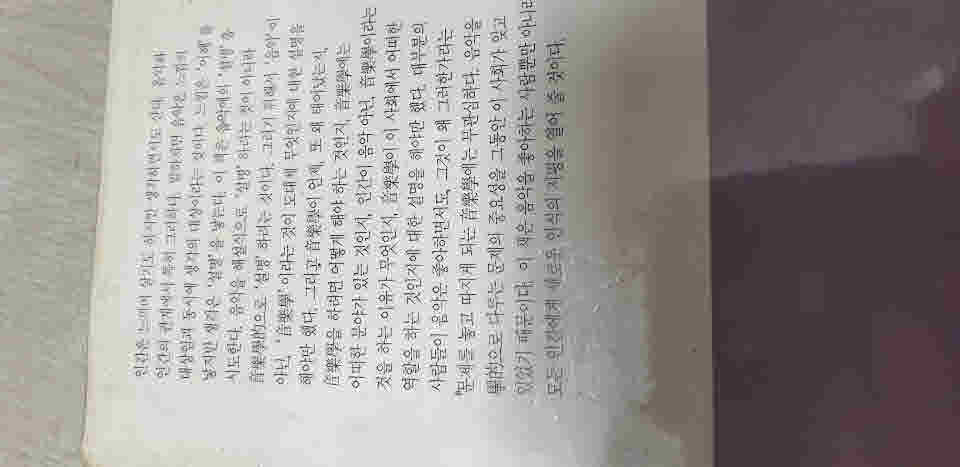 인간은 느끼며 살기도 하지만 생각하면서도 산다. 음악과
인간의 관계에서 특히 그러하다. 말하자면 음악은 느낌의
대상임과 동시에 생각의 대상이라는 것이다. 느낌은 '이해'를
낳지만 생각은 '설명'을 낳는다. 이 책은 음악에의 '설명'을
시도한다. 음악을 해설적으로 '설명'하려는 것이 아니라
音樂學的으로 '설명'하려는 것이다. 그러기 위해서 '음악'이
아닌, '音樂學'이라는 것이 도대체 무엇인지에 대한 설명을
해야만 했다. 그리고 音樂學이 언제, 또 왜 태어났는지,
音樂學을 하려면 어떻게 해야 하는 것인지, 音樂學에는
어떠한 분야가 있는 것인지, 인간이 음악 아닌, 音樂學이라는
것을 하는 이유가 무엇인지, 音樂學이 이 사회에서 어떠한
역할을 하는 것인지에 대한 설명을 해야만 했다. 대부분의
사람들이 음악은 좋아하면서도, 그것이 왜 그러한가라는
문제를 놓고 따지게 되는 音樂學에는 무관심하다. 음악을
學的으로 다루는 문제의 중요성을 그동안 이 사회가 잊고
있었기 때문이다. 이 책은 음악을 좋아하는 사람뿐만 아니라
모든 인간에게 새로운 인식의 지평을 열어 줄 것이다.